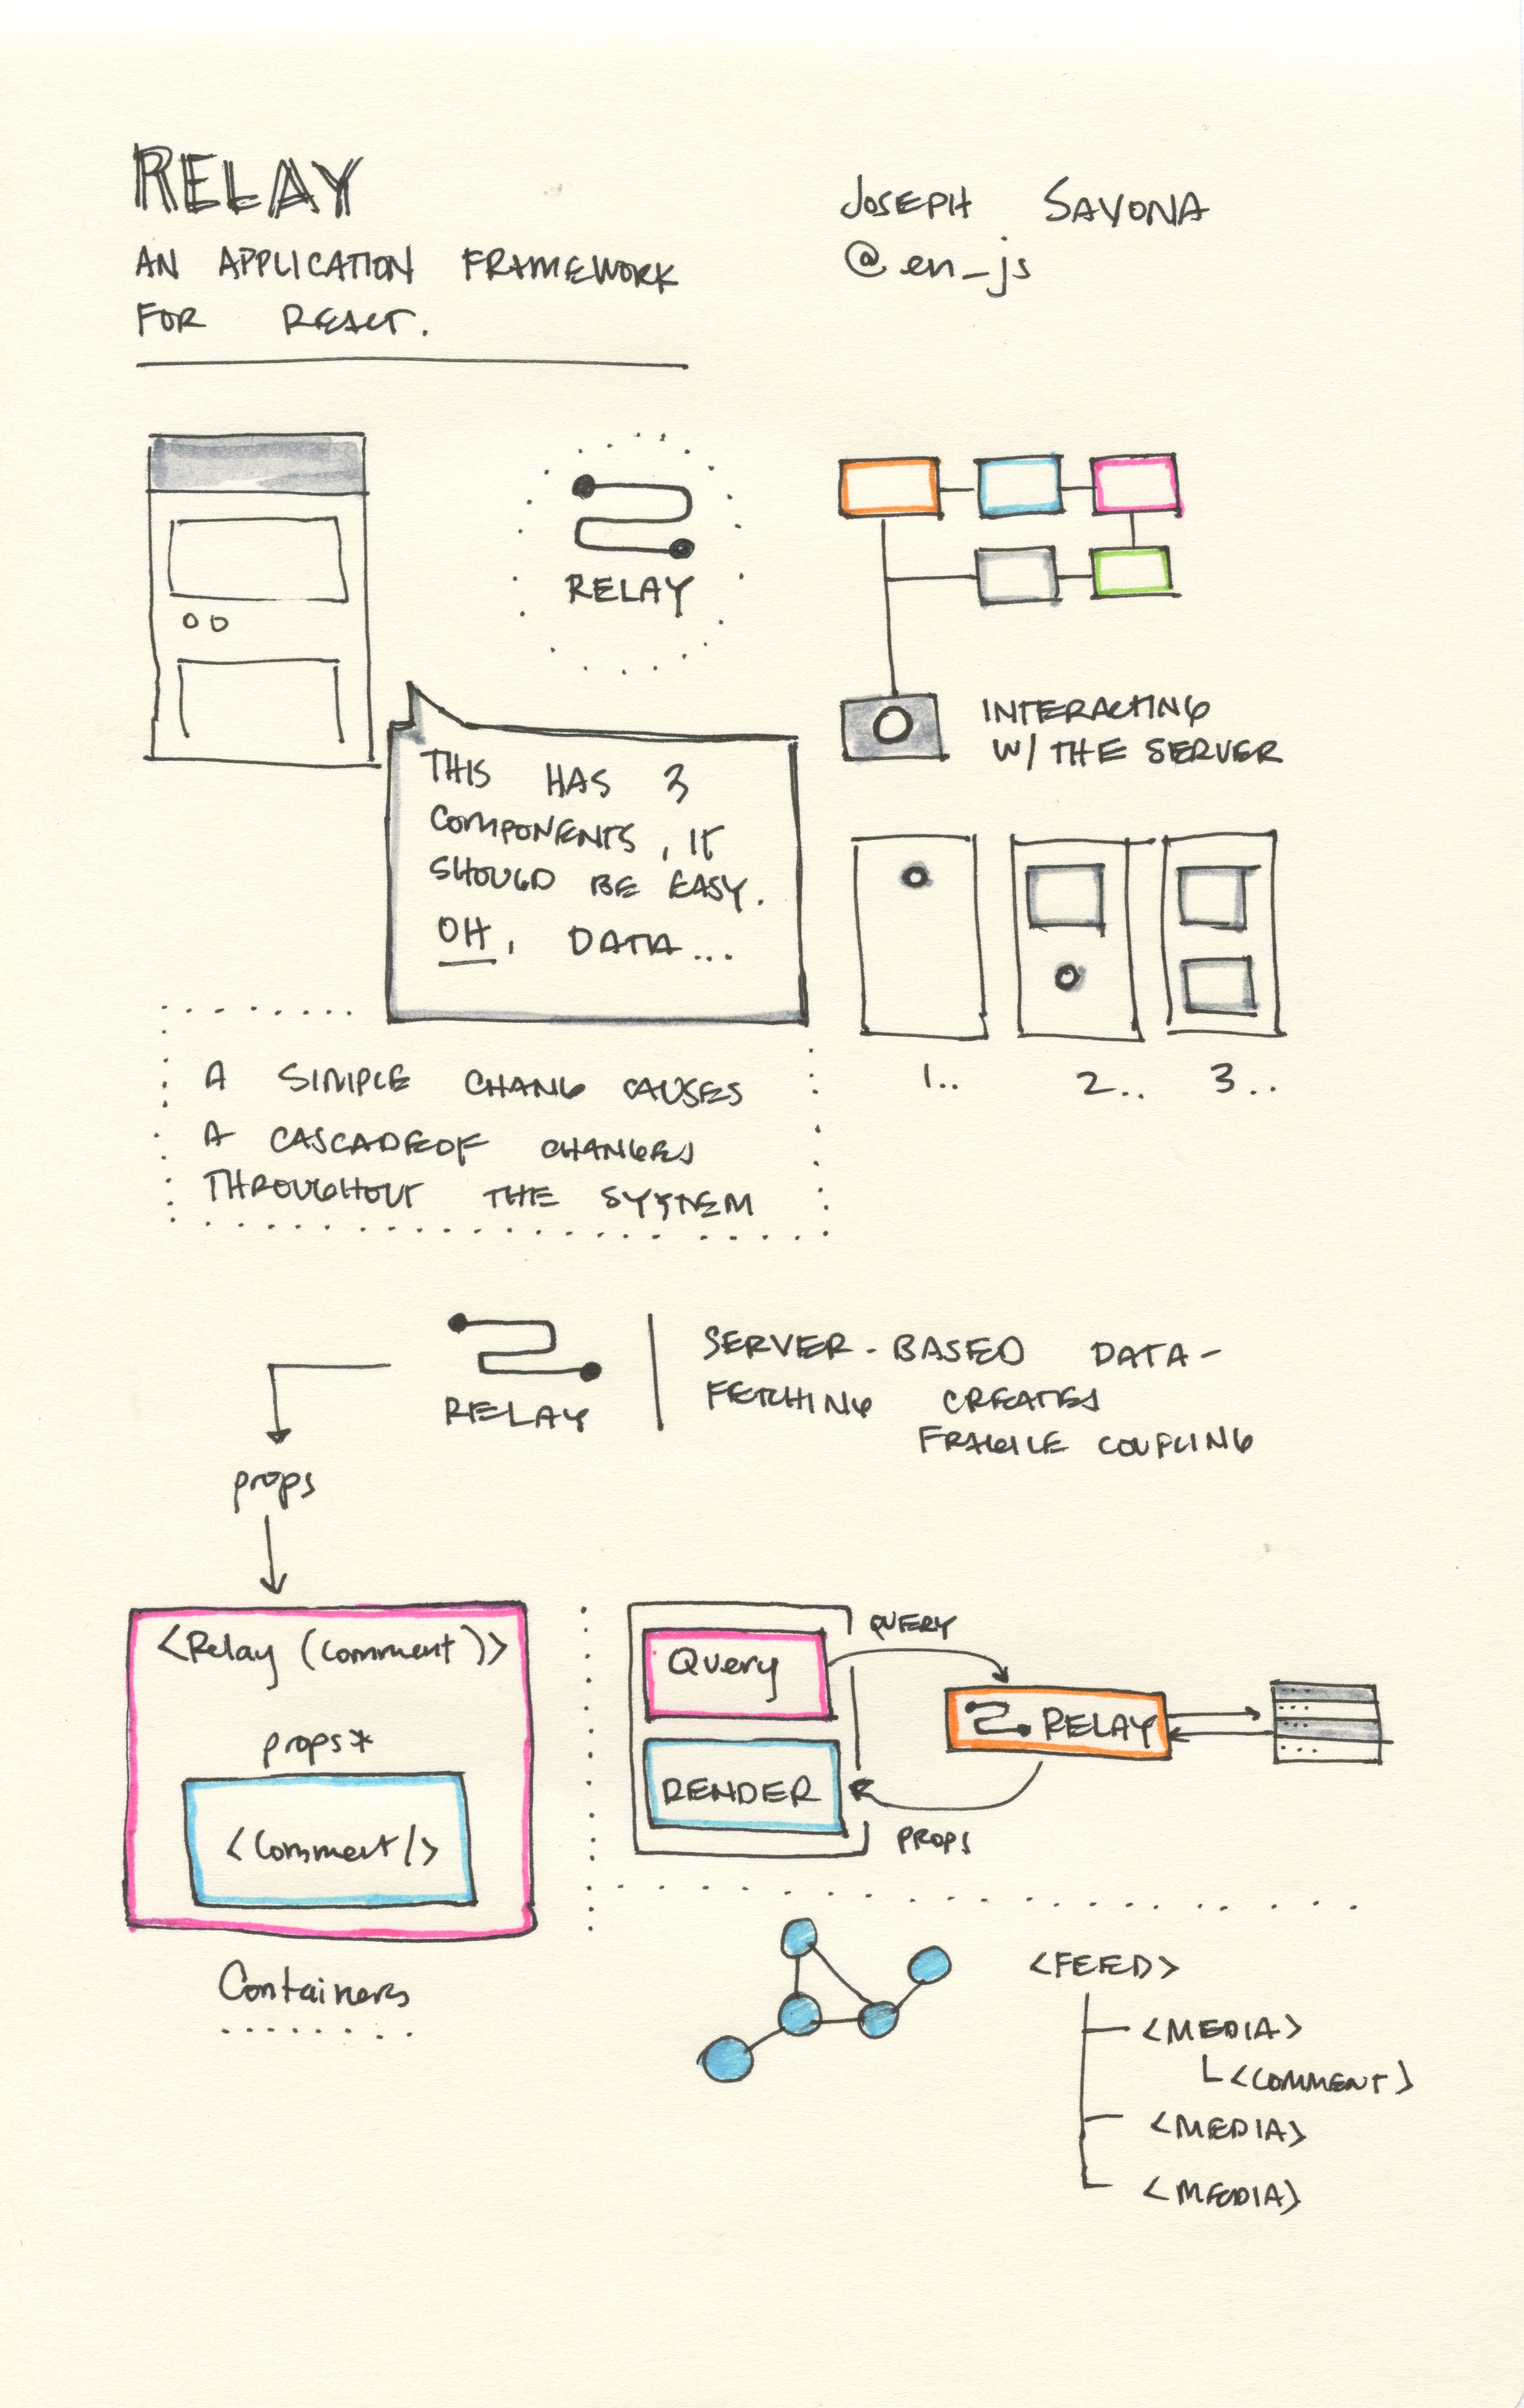 RELAY
AN APPLICATION FRAMEWORK
FOR REACT.
JOSEPH SAVONA
@en_js
RELAY
INTERACTING
W/ THE SERVER
THIS HAS 3
COMPONENTS, IT
SHOULD BE EASY.
OH, DATA...
1..
2..
3..
A SIMPLE CHANG CAUSES
A CASCADEOF CHANGES
THROUGHOUT THE SYSTEM
RELAY
SERVER-BASED DATA-
FETCHING CREATES
FRAGILE COUPLING
props
<Relay (Comment)>
props*
<Comment/>
Containers
Query
QUERY
RELAY
RENDER
PROPS
<FEED>
<MEDIA>
<COMMENT>
<MEDIA>
<MEDIA>